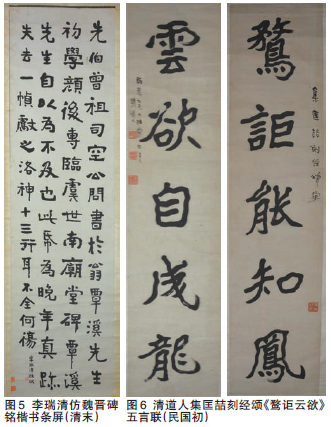 先伯曾祖司空公問書於翁覃溪先生
初學顏後專臨虞世南廟堂碑覃溪
先生自以為不及也此爲晚年真跡
失去一幀獻之洛神十三行耳不全何傷
集匡喆刻經頌字
鶩詎能知鳳
雲欲自成龍
图5 李瑞清仿魏晋碑
铭楷书条屏(清末)
图6 清道人集匡喆刻经颂《鹜讵云欲》
五言联(民国初)